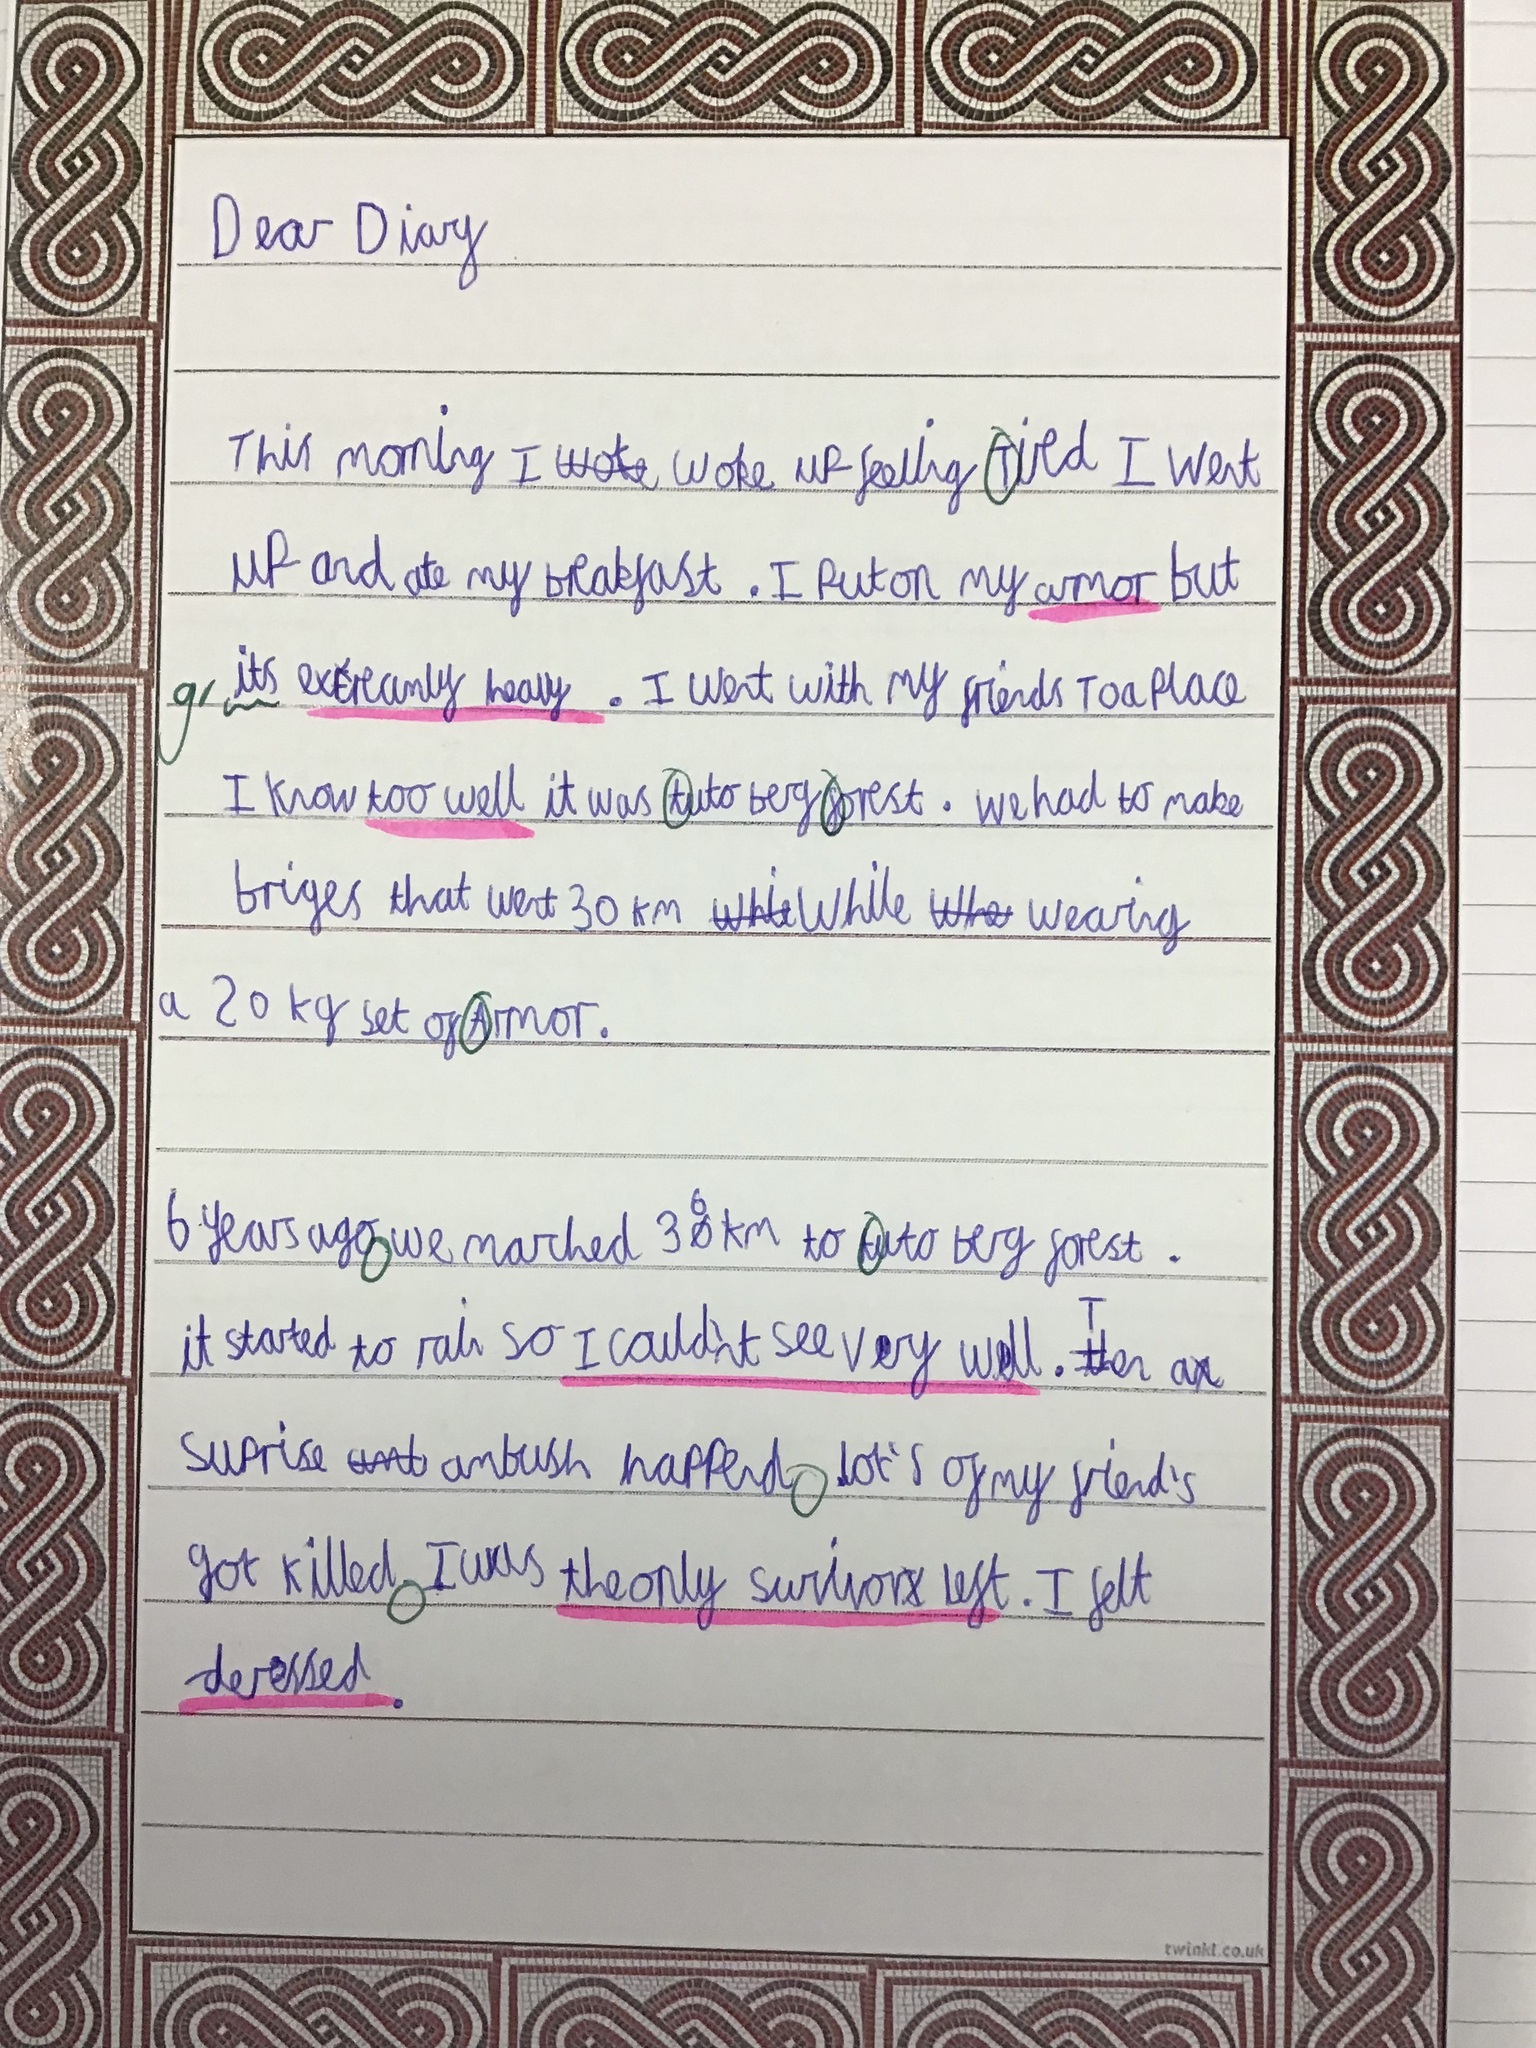 Dear Diary
This morning I woke woke up feeling Tired I went
up and ate my breakfast. I put on my armor but
gr its extreamly heavy. I went with my friends To a place
I know too well it was tuto berg forest. we had to make
briges that went 30 km while while wearing
a 20 kg set of Armor.
6 years ago we marched 36 km to tuto berg forest.
it started to rain so I could'nt see very well. Then a
suprise ambush happend lot's of my friend's
got killed I was the only survivor left. I felt
deressed.
twinkl.co.uk